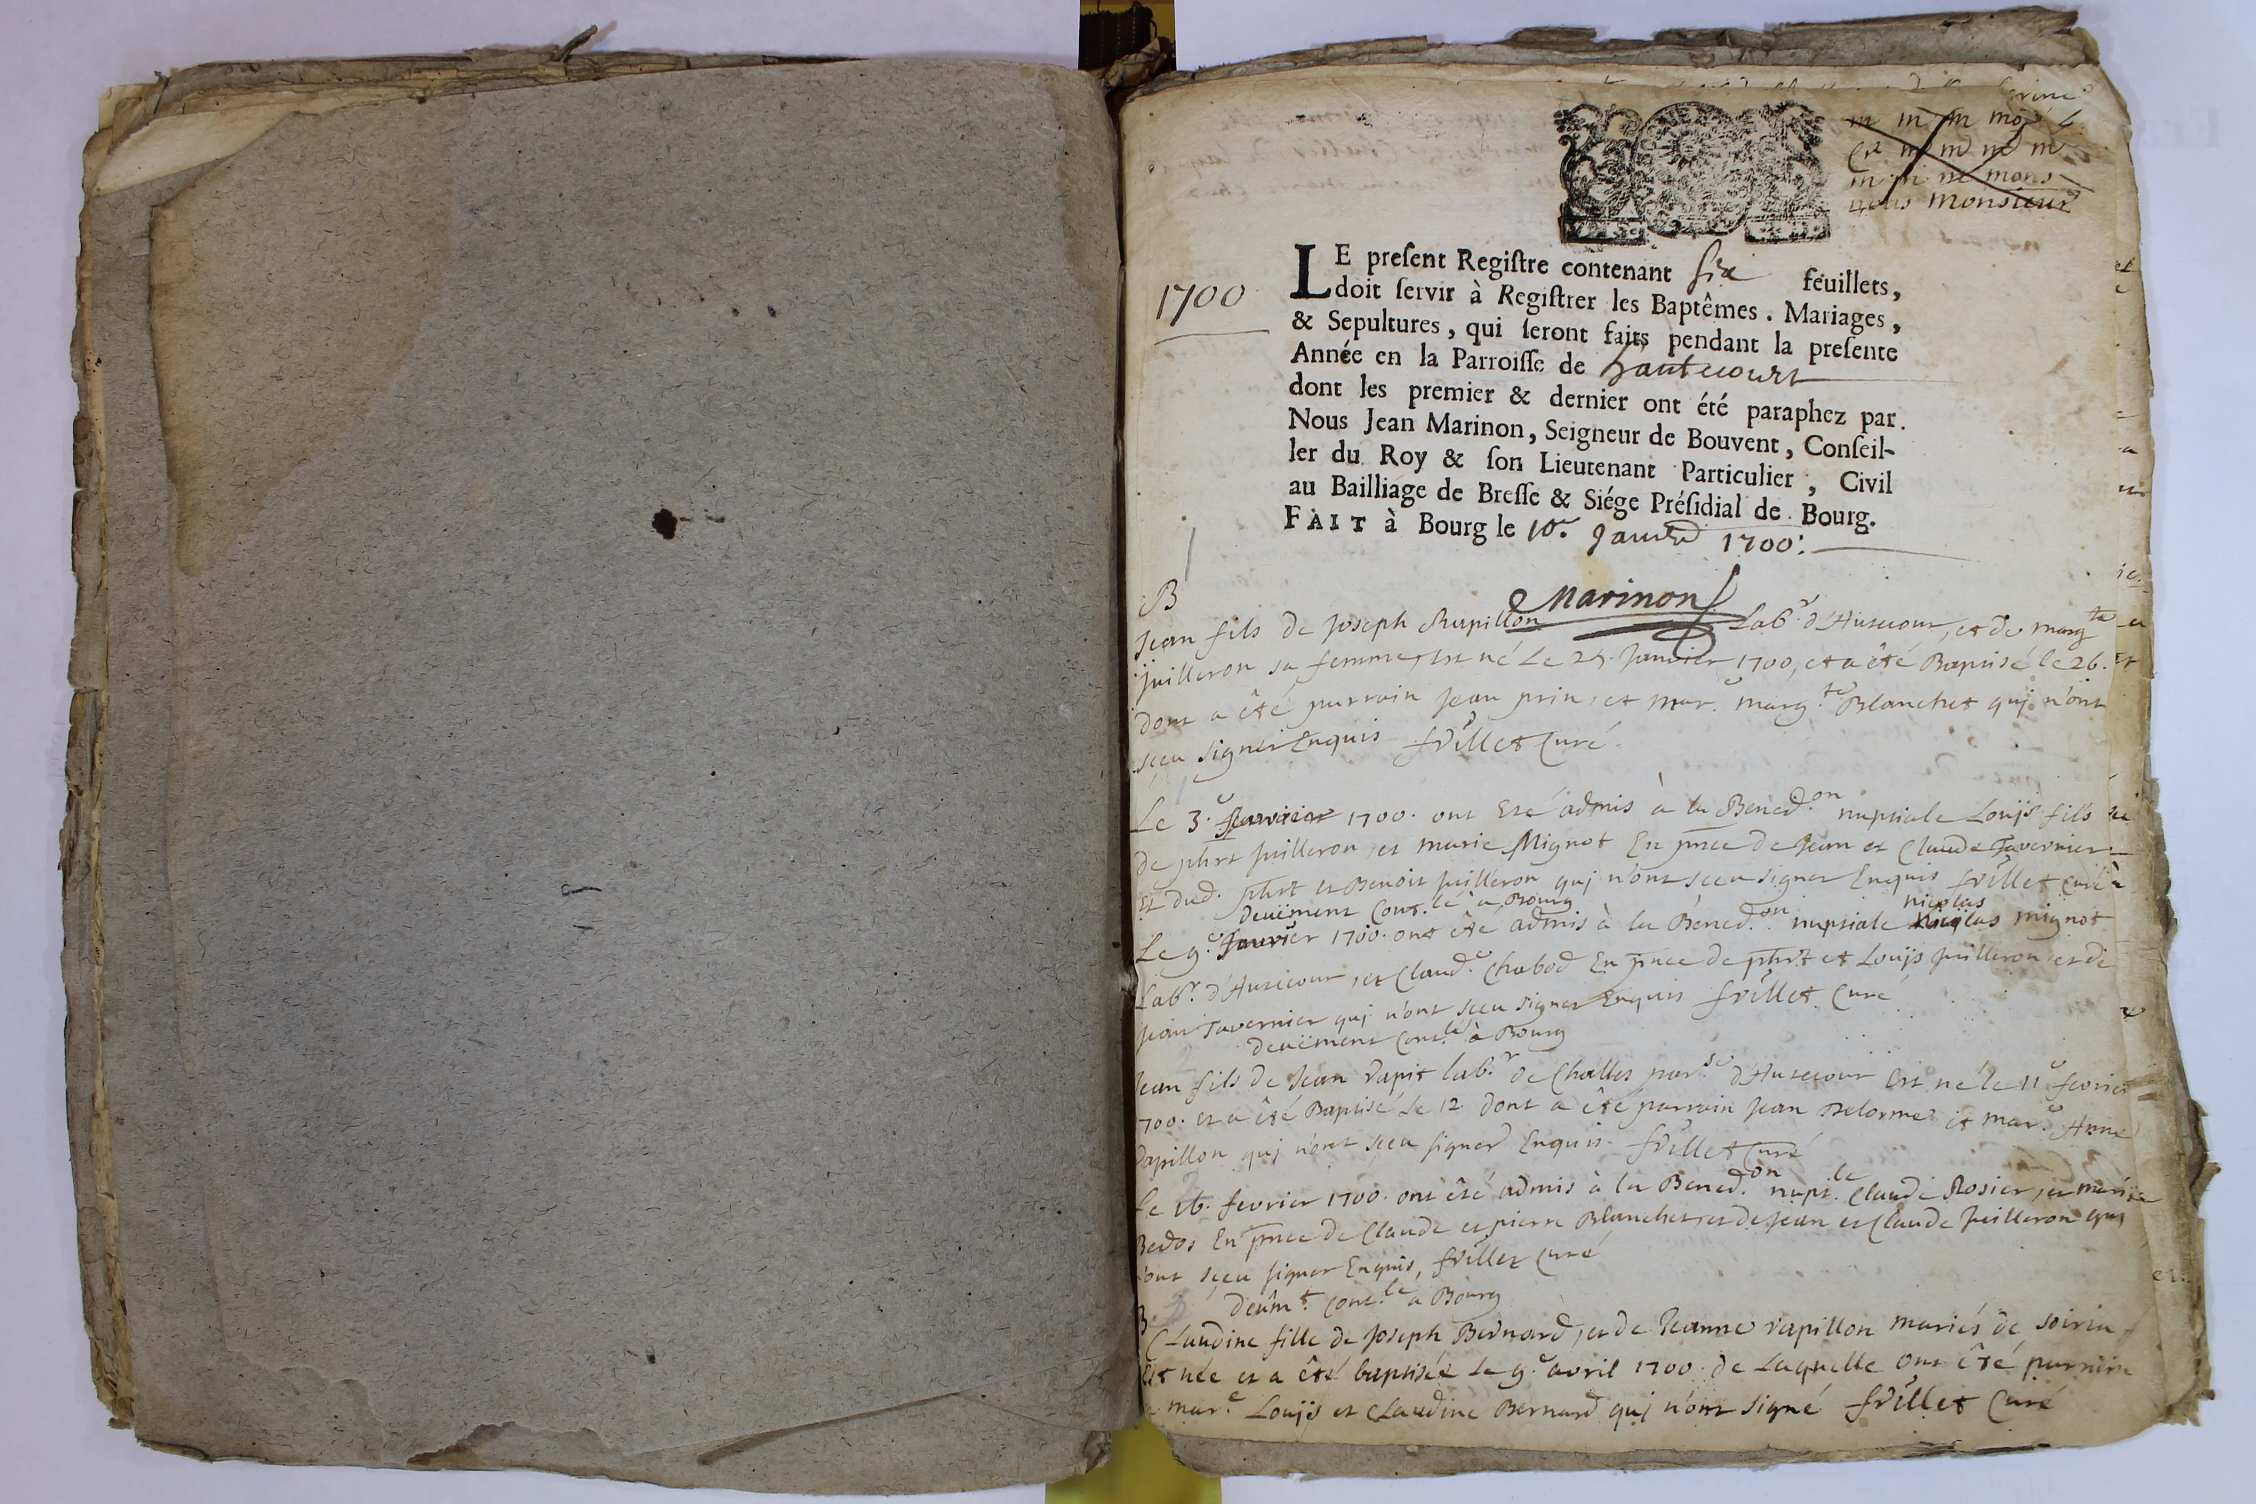 m m m mo
m m m m
m m m mons
nous monsieur
LE preſent Regiſtre contenant ſix feüillets,
1700
doit ſervir à Regiſtrer les Baptêmes. Mariages,
& Sepultures, qui ſeront faits pendant la preſente
Année en la Parroiſſe de hautecourt
dont les premier & dernier ont été paraphez par.
Nous Jean Marinon, Seigneur de Bouvent, Conſeil-
ler du Roy & ſon Lieutenant Particulier, Civil
au Bailliage de Breſſe & Siége Préſidial de Bourg.
FAIT à Bourg le 10e Janvier 1700:
Marinon
B
Jean fils de Joseph Rapillon Labr d'Hutecour, et de margte
Juilleron sa femme, est né Le 25. Janvier 1700, et a êté Baptisé le 26.
dont a êté parrain Jean prin, et mare margte Blanchet qui n'ont
sçeu signer Enquis frillet Curé.
Le 3e fevrier 1700. ont Eté admis à la Benedon nuptiale Louijs fils
de phrt Juilleron, et marie Mignot En pnce de Jean et Claude Tavernier
Et dud. phrt et Benoit Juilleron qui n'ont sceu signer Enquis frillet Curé
deuëment Cont.lé à Bourg
nicolas
Le 9e fevrier 1700. ont êté admis à la Benedon nuptiale nicolas mignot
Labr. d'Hutecour, et Claude Chabod En pnce de phrt et Louijs Juilleron, et de
Jean Tavernier qui n'ont sceu signer Enquis frillet Curé
deuëment Cont.lé à Bourg
Jean fils de Jean Rapit labr de Challes parse d'Hutecour Est né le 11e fevrier
1700. et a êté Baptisé Le 12 dont a êté parrain Jean Delorme et mare Anne
Rapillon qui n'ont sceu signer Enquis. frillet Curé
Le 16. fevrier 1700. ont êté admis à la Benedon nuptle Claude Rosier, et marie
Bedos En pnce de Claude et pierre Blanchet, et de Jean et Claude Juilleron qui
n'ont sceu signer Enquis, frillet Curé
deûmt. Cont.lé à Bourg
B
Claudine fille de Joseph Bernard, et de Jeanne rapillon mariés de soiria
Est née et a êté baptisée Le 9e avril 1700. de Laquelle ont êté parrain
et mare Louijs et Claudine Bernard qui n'ont signé frillet Curé